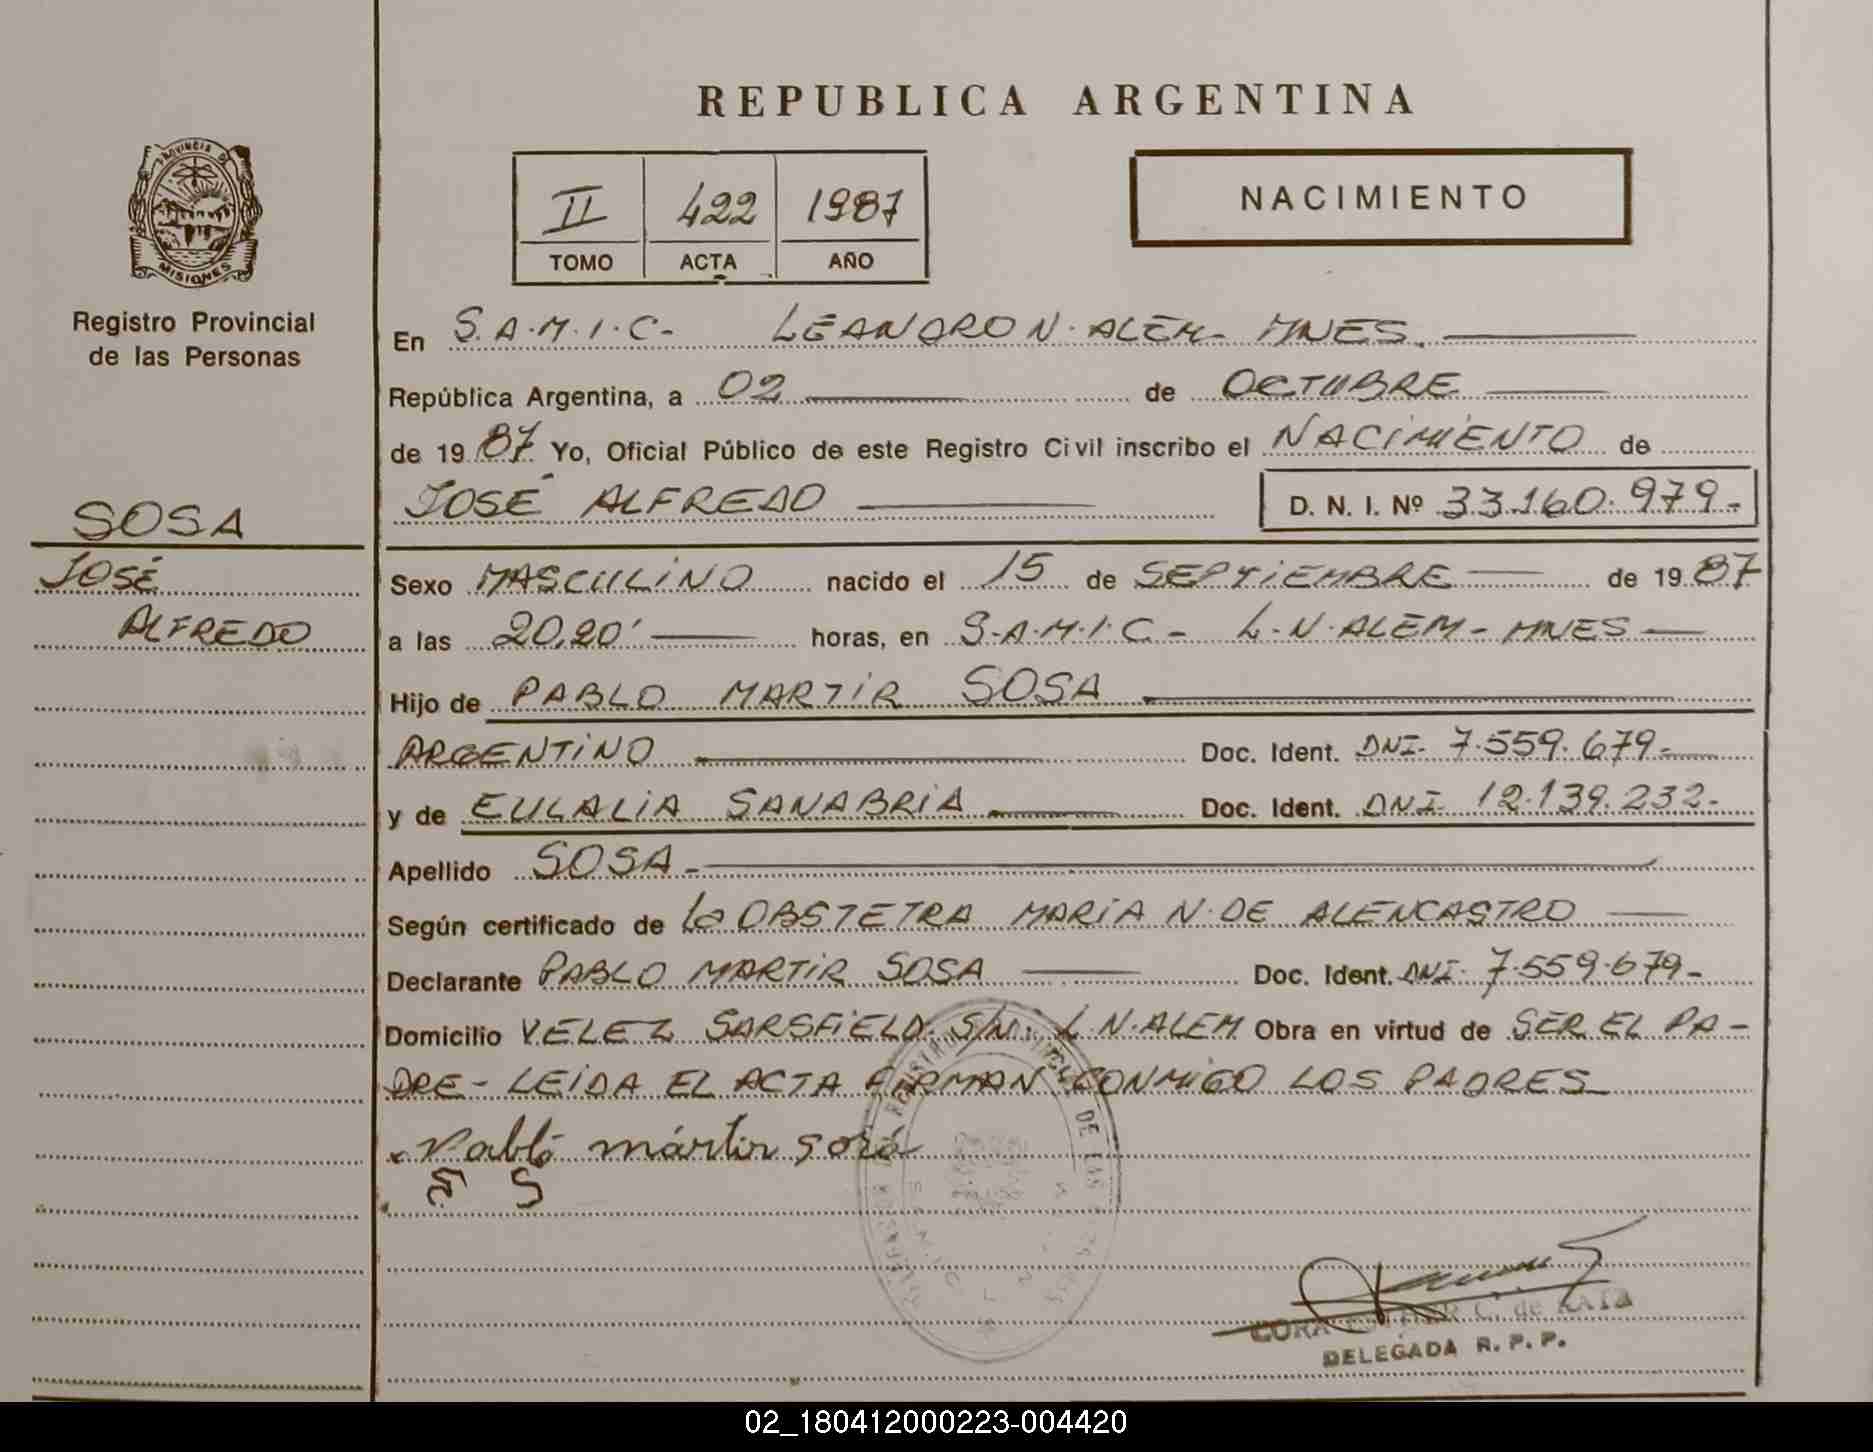 REPUBLICA ARGENTINA
PROVINCIA DE
MISIONES
Registro Provincial
de las Personas
II 422 1987
TOMO ACTA AÑO
NACIMIENTO
En S.A.M.I.C- LEANDRO N. ALEM- MNES.
República Argentina, a 02 de OCTUBRE
de 1987 Yo, Oficial Público de este Registro Civil inscribo el NACIMIENTO de
JOSÉ ALFREDO D. N. I. Nº 33.160.979.-
SOSA
JOSÉ
ALFREDO
Sexo MASCULINO nacido el 15 de SEPTIEMBRE de 1987
a las 20,20' horas, en S.A.M.I.C- L.N. ALEM- MNES
Hijo de PABLO MARTIR SOSA
ARGENTINO Doc. Ident. DNI. 7.559.679.-
y de EULALIA SANABRIA Doc. Ident. DNI. 12.139.232.-
Apellido SOSA.-
Según certificado de la OBSTETRA MARIA N. DE ALENCASTRO
Declarante PABLO MARTIR SOSA Doc. Ident. DNI. 7.559.679-
Domicilio VELEZ SARSFIELD. S/N. L.N. ALEM Obra en virtud de SER EL PA-
DRE- LEIDA EL ACTA FIRMAN CONMIGO LOS PADRES
Pablo mártir sosa
E S
DE LAS
C. de
DELEGADA R. P. P.
02_180412000223-004420